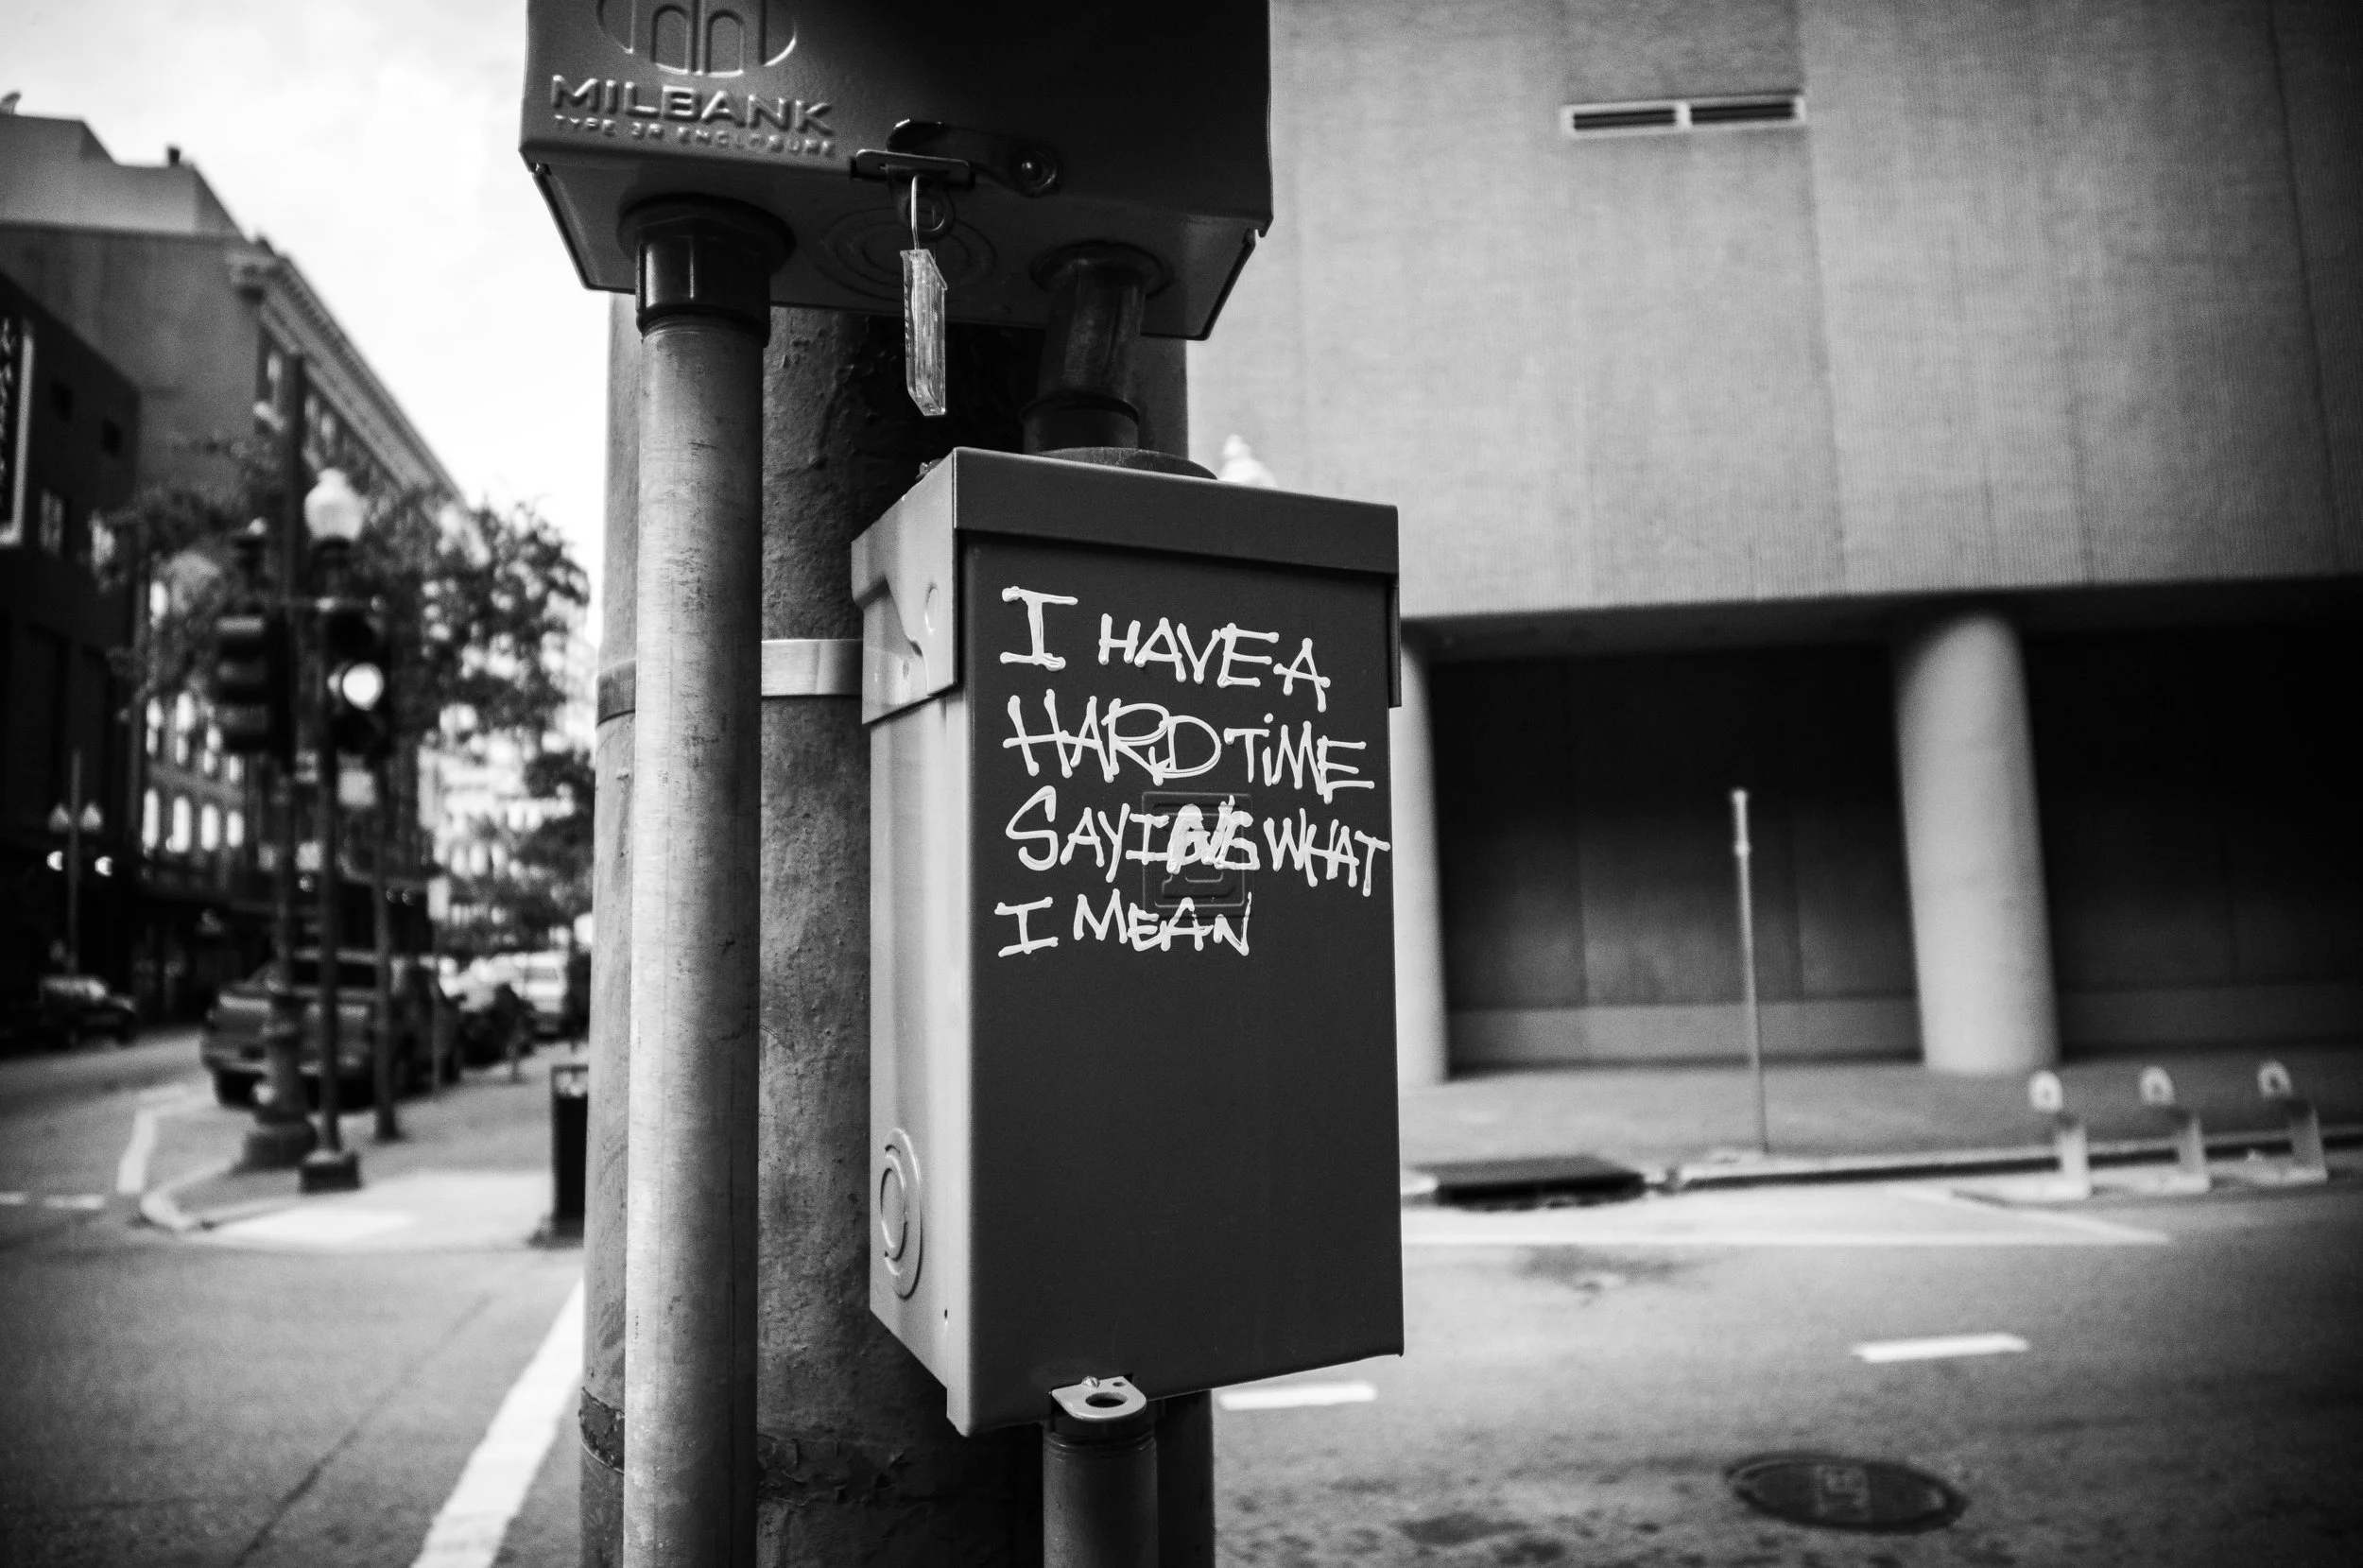 MILBANK
TYPE 3R ENCLOSURE
I HAVE A
HARD TiME
SAYING WHAT
I MEAN